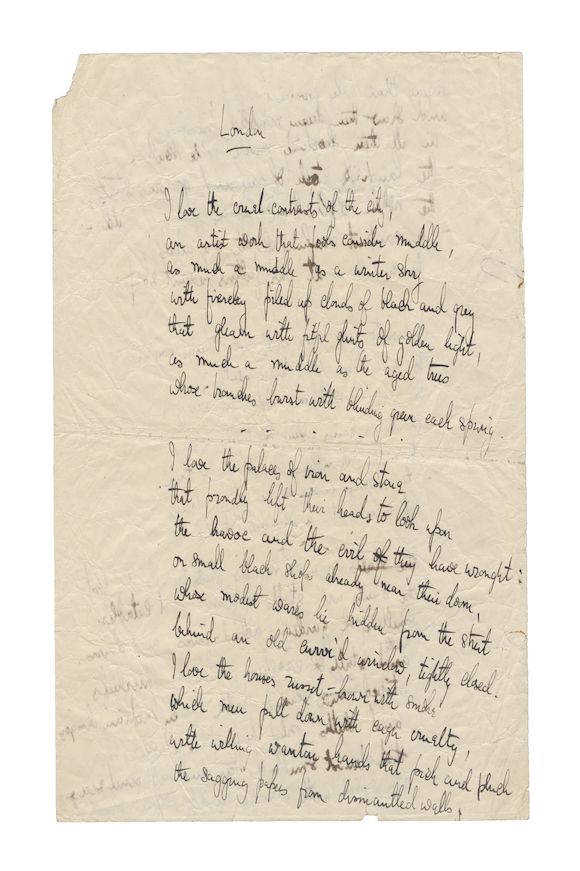 London
I love the cruel contrasts of the city,
an artist work that fools consider muddle,
as much a muddle as a winter sky
with fiercely piled up clouds of black and grey
that gleam with fitful glints of golden light,
as much a muddle as the aged trees
whose branches burst with blinding green each spring.
I love the palaces of iron and stone
that proudly lift their heads to look upon
the havoc and the evil they have wrought:
on small black shops already near their doom,
whose modest wares lie hidden from the street
behind an old curv'd window, tightly closed.
I love the houses russet-brown with smoke
which men pull down with eager cruelty,
with willing wanton hands that pick and pluck
the sagging papers from dismantled walls,